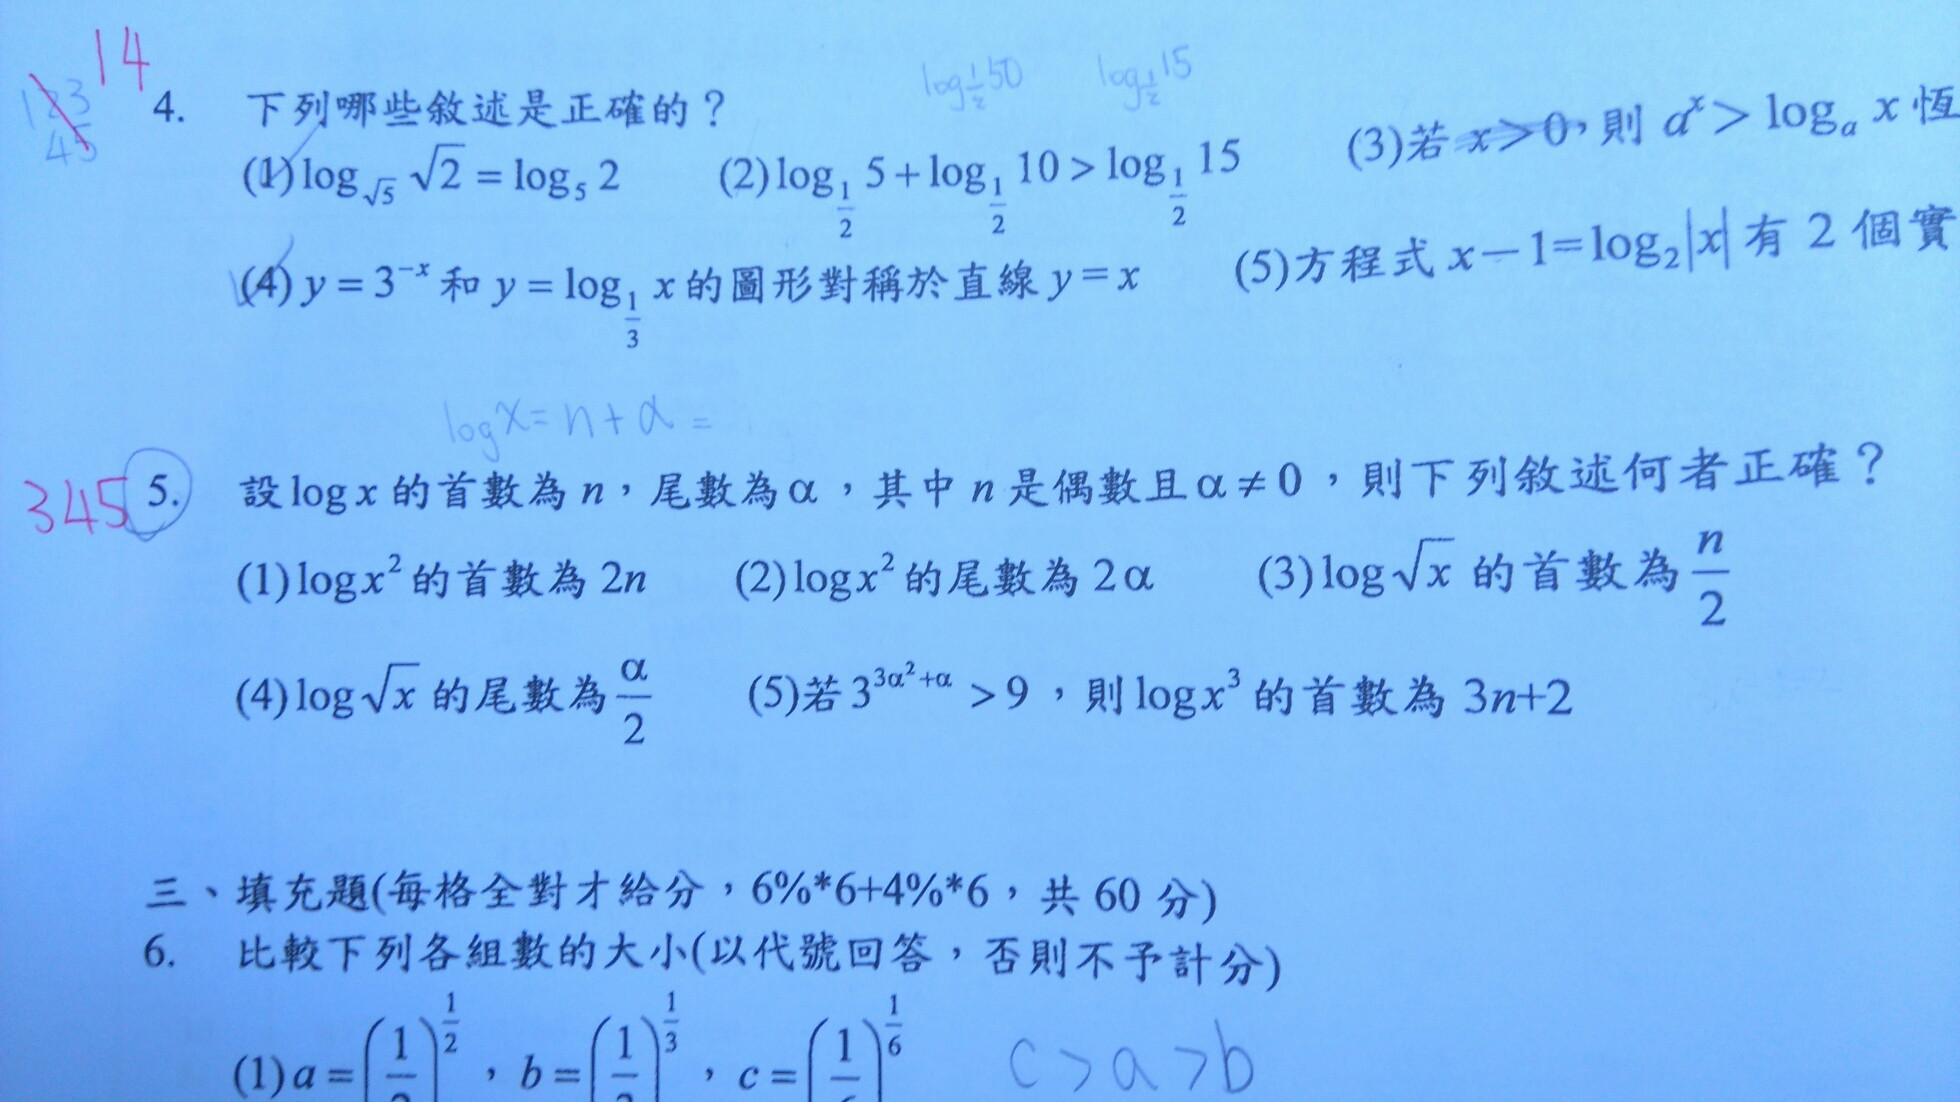 14
123
45
log½50 log½15
4. 下列哪些敘述是正確的？
(1) log_√5 √2 = log₅ 2 (2) log_{1/2} 5 + log_{1/2} 10 > log_{1/2} 15 (3)若 x>0，則 aˣ > logₐ x 恆
(4) y = 3⁻ˣ 和 y = log_{1/3} x 的圖形對稱於直線 y = x (5)方程式 x－1=log₂|x| 有 2 個實
log x = n + α =
345
5. 設 log x 的首數為 n，尾數為 α，其中 n 是偶數且 α ≠ 0，則下列敘述何者正確？
(1) log x² 的首數為 2n (2) log x² 的尾數為 2α (3) log √x 的首數為 n/2
(4) log √x 的尾數為 α/2 (5)若 3^{3α²+α} > 9，則 log x³ 的首數為 3n+2
三、填充題(每格全對才給分，6%*6+4%*6，共 60 分)
6. 比較下列各組數的大小(以代號回答，否則不予計分)
(1) a = (1/2)^{1/2}，b = (1/3)^{1/3}，c = (1/6)^{1/6} c > a > b